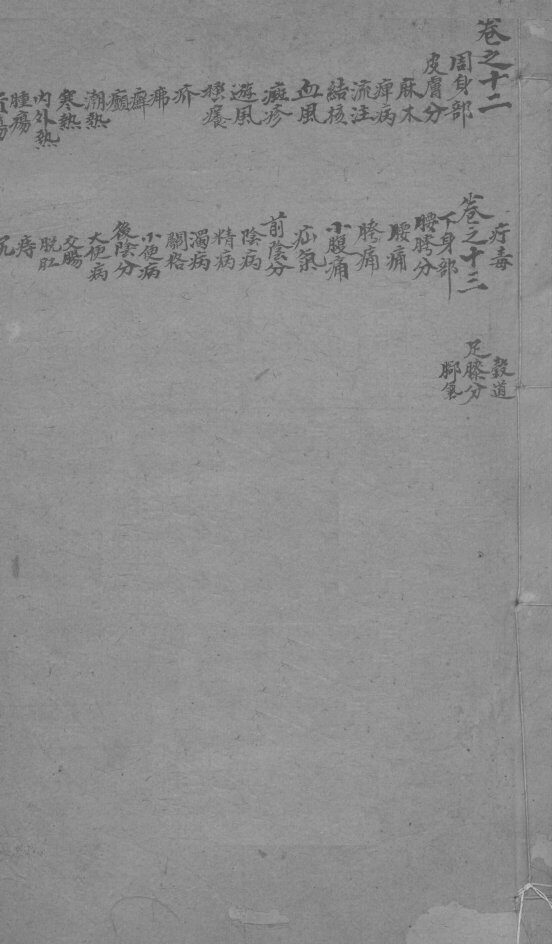 卷之十二
周身部
皮膚分
麻木
痺病
流注
結核
血風
癍疹
遊風
瘙癢
疥
疿
癬
癲
潮熱
寒熱
内外熱
腫瘍
疔毒
卷之十三
下身部
腰胯分
腰痛
胯痛
小腹痛
疝氣
前陰分
陰病
精病
濁病
關格
小便病
後陰分
大便病
交腸
脫肛
痔
穀道
足膝分
脚氣